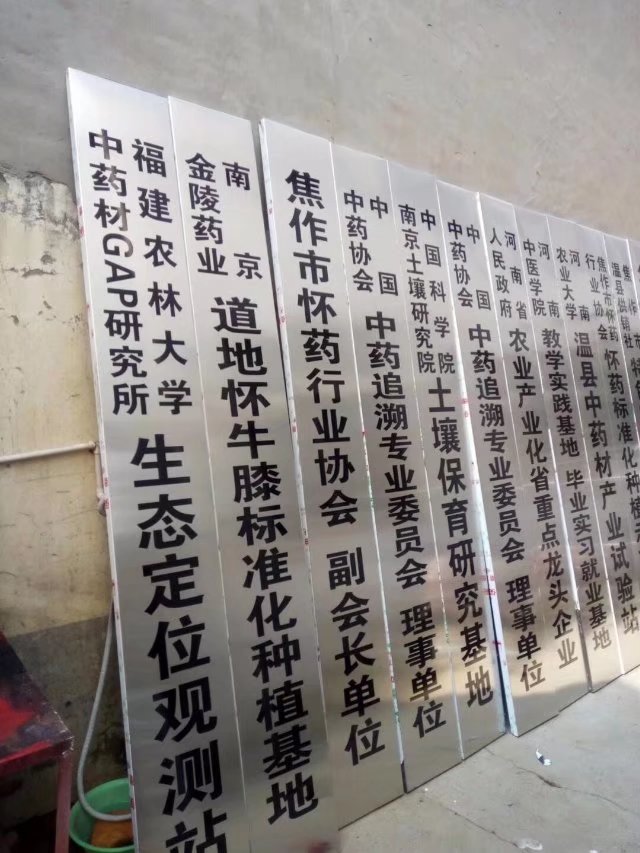 福建农林大学
中药材GAP研究所
生态定位观测站
南京
金陵药业
道地怀牛膝标准化种植基地
焦作市怀药行业协会 副会长单位
中国
中药协会
中药追溯专业委员会 理事单位
中国科学院
南京土壤研究院
土壤保育研究基地
中国
中药协会
中药追溯专业委员会 理事单位
河南省
人民政府
农业产业化省重点龙头企业
河南
中医学院
教学实践基地 毕业实习就业基地
河南
农业大学
温县中药材产业试验站
焦作市怀药
行业协会
怀药标准化种植
温县供销社